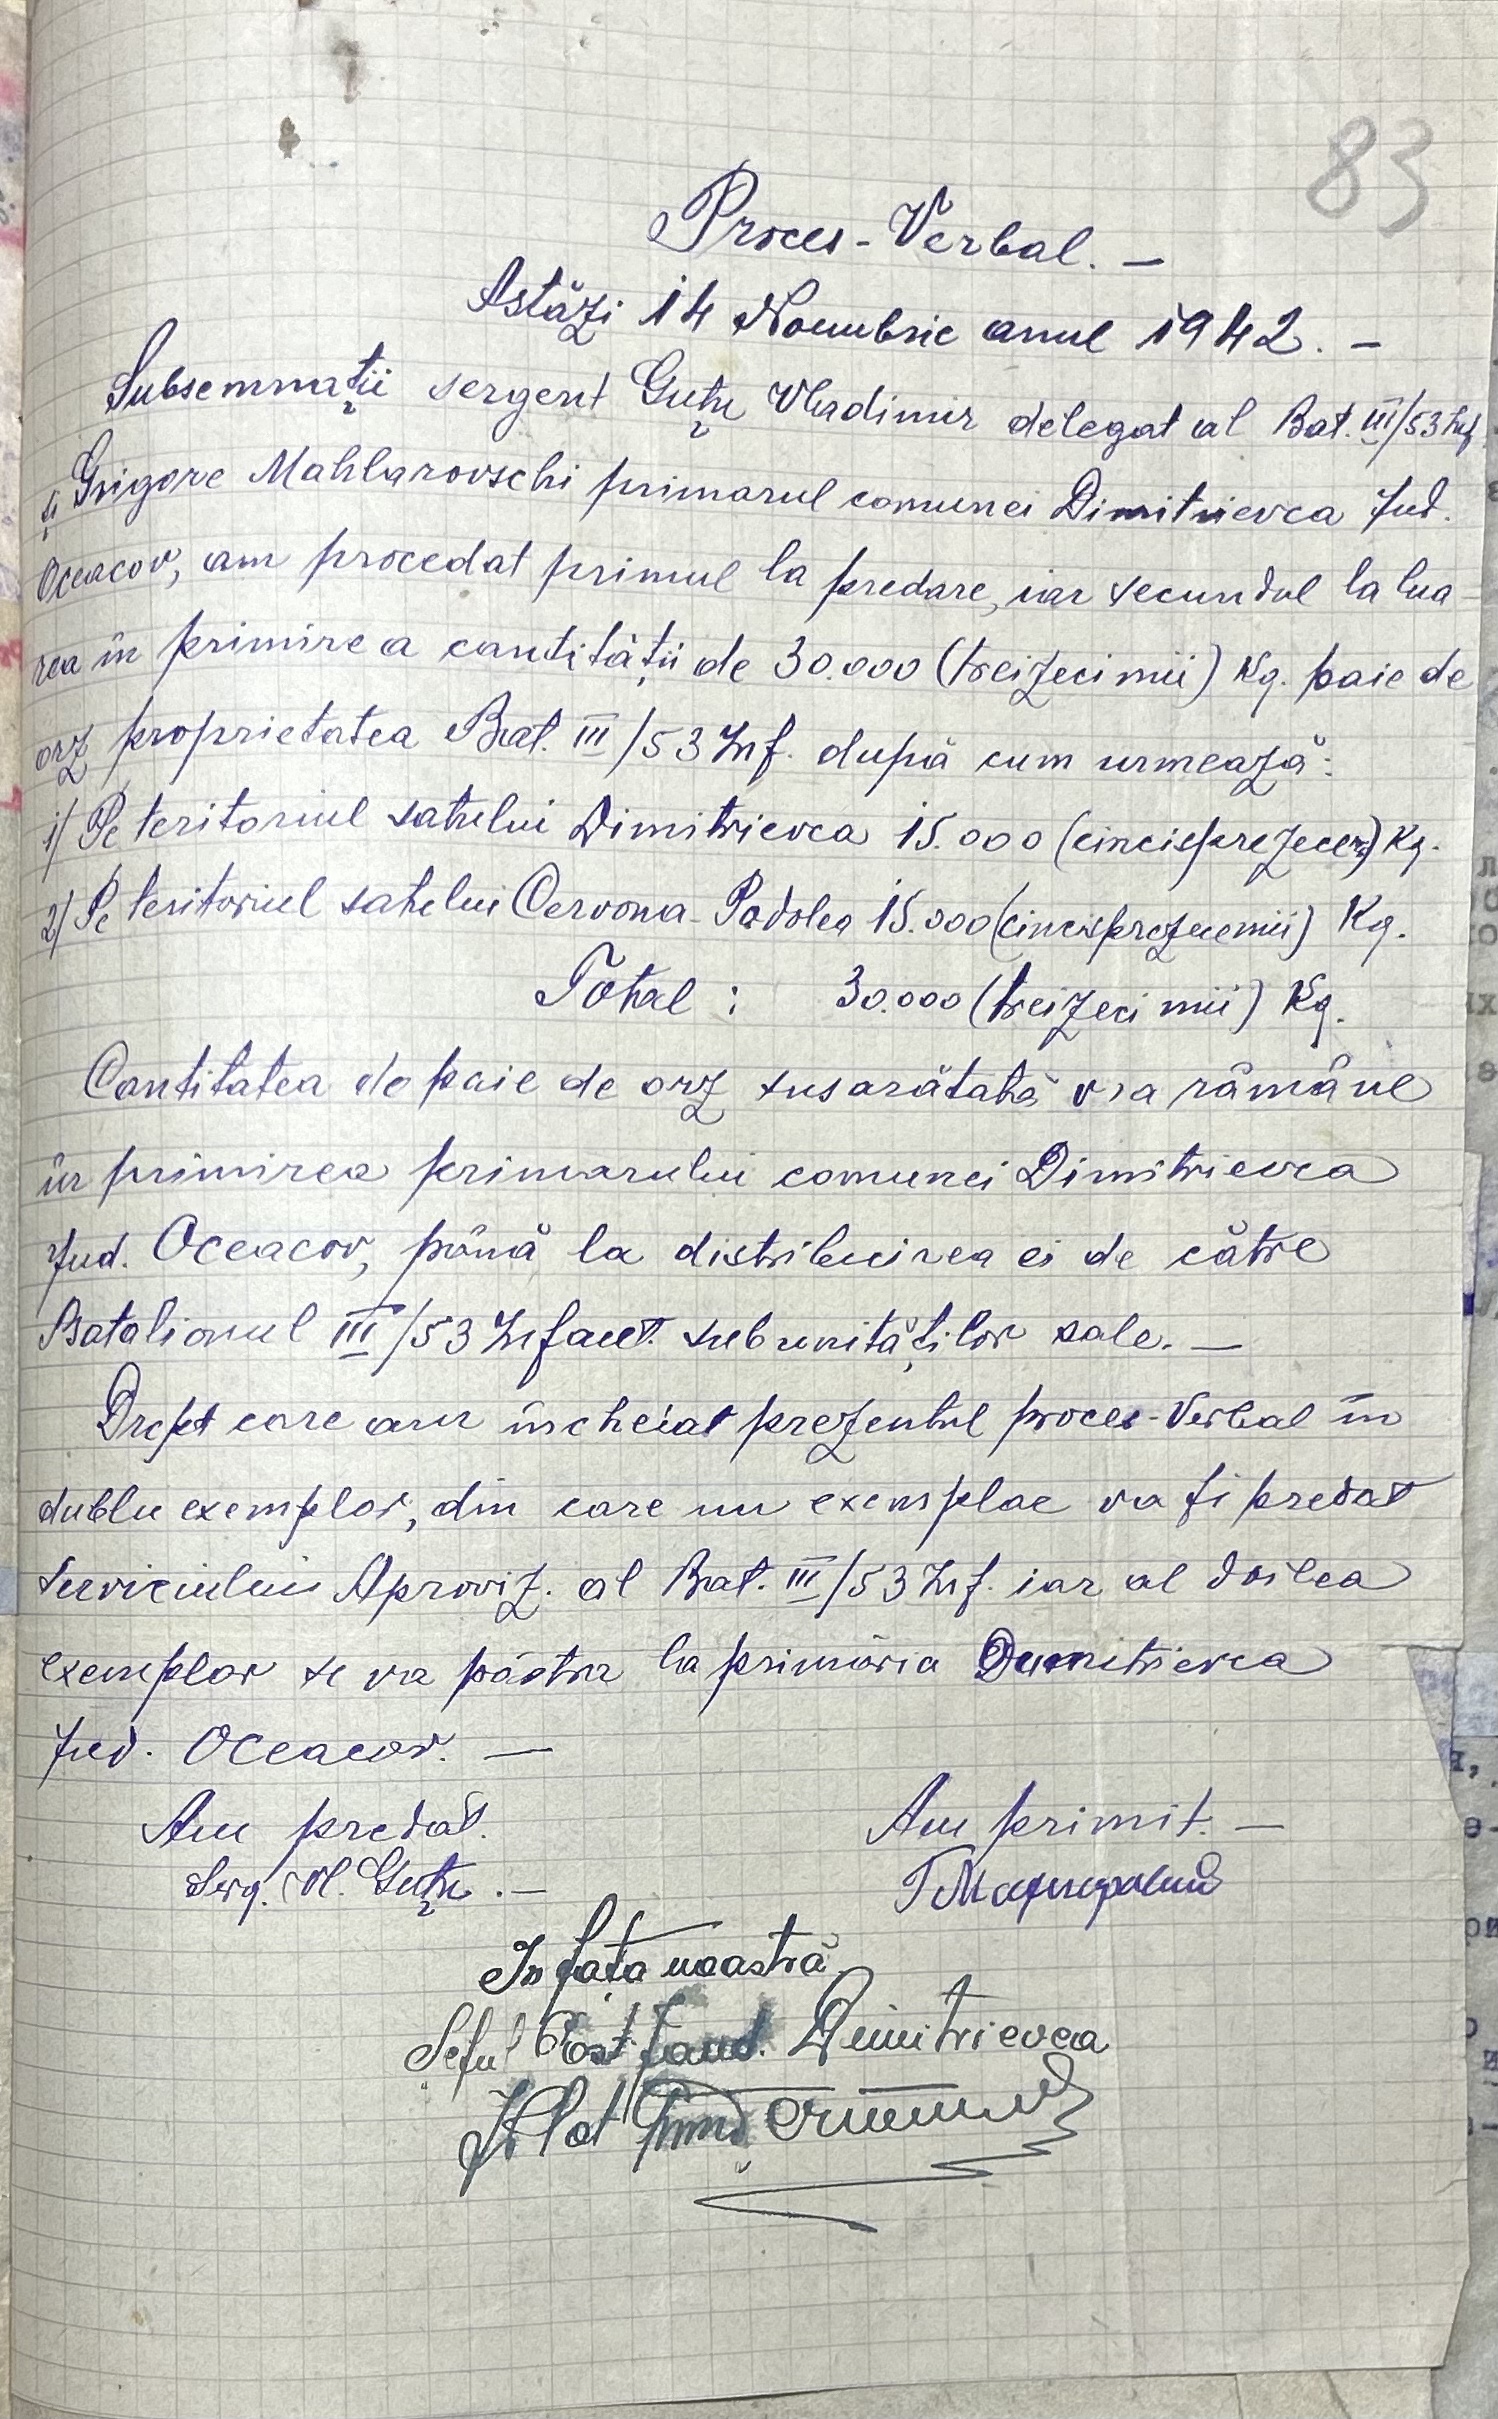 83
Proces-Verbal. —
Astăzi 14 Noembrie anul 1942. —
Subsemnații sergent Guțu Vladimir delegat al Bat. III/53 Inf
și Grigore Mahlarovschi primarul comunei Dimitrievca Jud.
Oceacov, am procedat primul la predare, iar secundul la lua
rea în primire a cantității de 30.000 (treizeci mii) Kg. paie de
orz proprietatea Bat. III/53 Inf. după cum urmează:
1) Pe teritoriul satului Dimitrievca 15.000 (cincisprezece) Kg.
2) Pe teritoriul satului Cervona-Padolea 15.000 (cincisprezecemii) Kg.
Total : 30.000 (treizeci mii) Kg.
Cantitatea de paie de orz susarătată va rămâne
în primirea primarului comunei Dimitrievca
Jud. Oceacov, până la distribuirea ei de către
Batalionul III/53 Infant. subunităților sale. —
Drept care am încheiat prezentul proces-Verbal în
dublu exemplar, din care un exemplar va fi predat
Serviciului Aproviz. al Bat. III/53 Inf. iar al doilea
exemplar se va păstra la primăria Dumitrievca
Jud. Oceacov. —
Am predat. Am primit. —
Serg. Vl. Guțu. —
In fața noastră
Șeful Post Jand. Dimitrievca
Plot